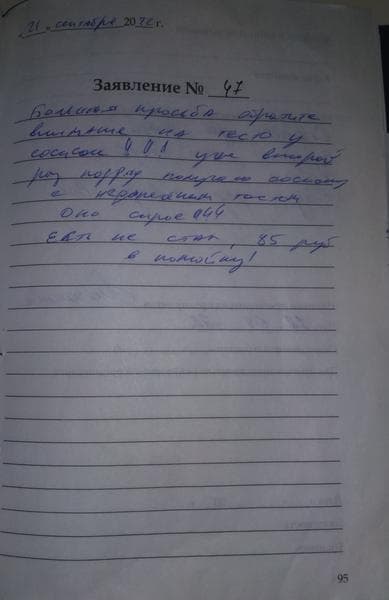 21 сентября 2020 г.
Заявление № 47
Большая просьба обратите
внимание на тесто у
сосисок!!! уже второй
раз подряд покупаю сосиску
с недопеченным тестом
Оно сырое!!!
Есть не стал, 85 руб
в помойку!
95